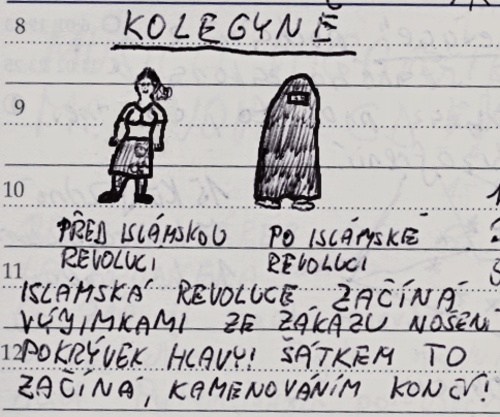 8 KOLEGYNĚ
9
10
PŘED ISLÁMSKOU PO ISLÁMSKÉ
REVOLUCI REVOLUCI
11
ISLÁMSKÁ REVOLUCE ZAČÍNÁ
VÝJIMKAMI ZE ZÁKAZU NOŠENÍ
12 POKRÝVEK HLAVY! ŠÁTKEM TO
ZAČÍNÁ, KAMENOVÁNÍM KONČÍ!